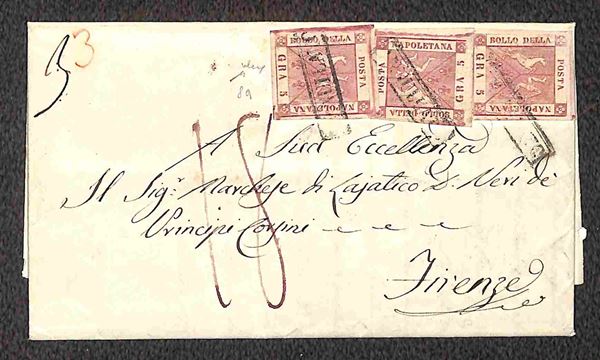 3 3
BOLLO DELLA POSTA NAPOLETANA GRA 5
BOLLO DELLA POSTA NAPOLETANA GRA 5
BOLLO DELLA POSTA NAPOLETANA GRA 5
89
18
A Sua Eccellenza
Il Sigr. Marchese di Lajatico D. Neri de'
Principi Corsini
Firenze